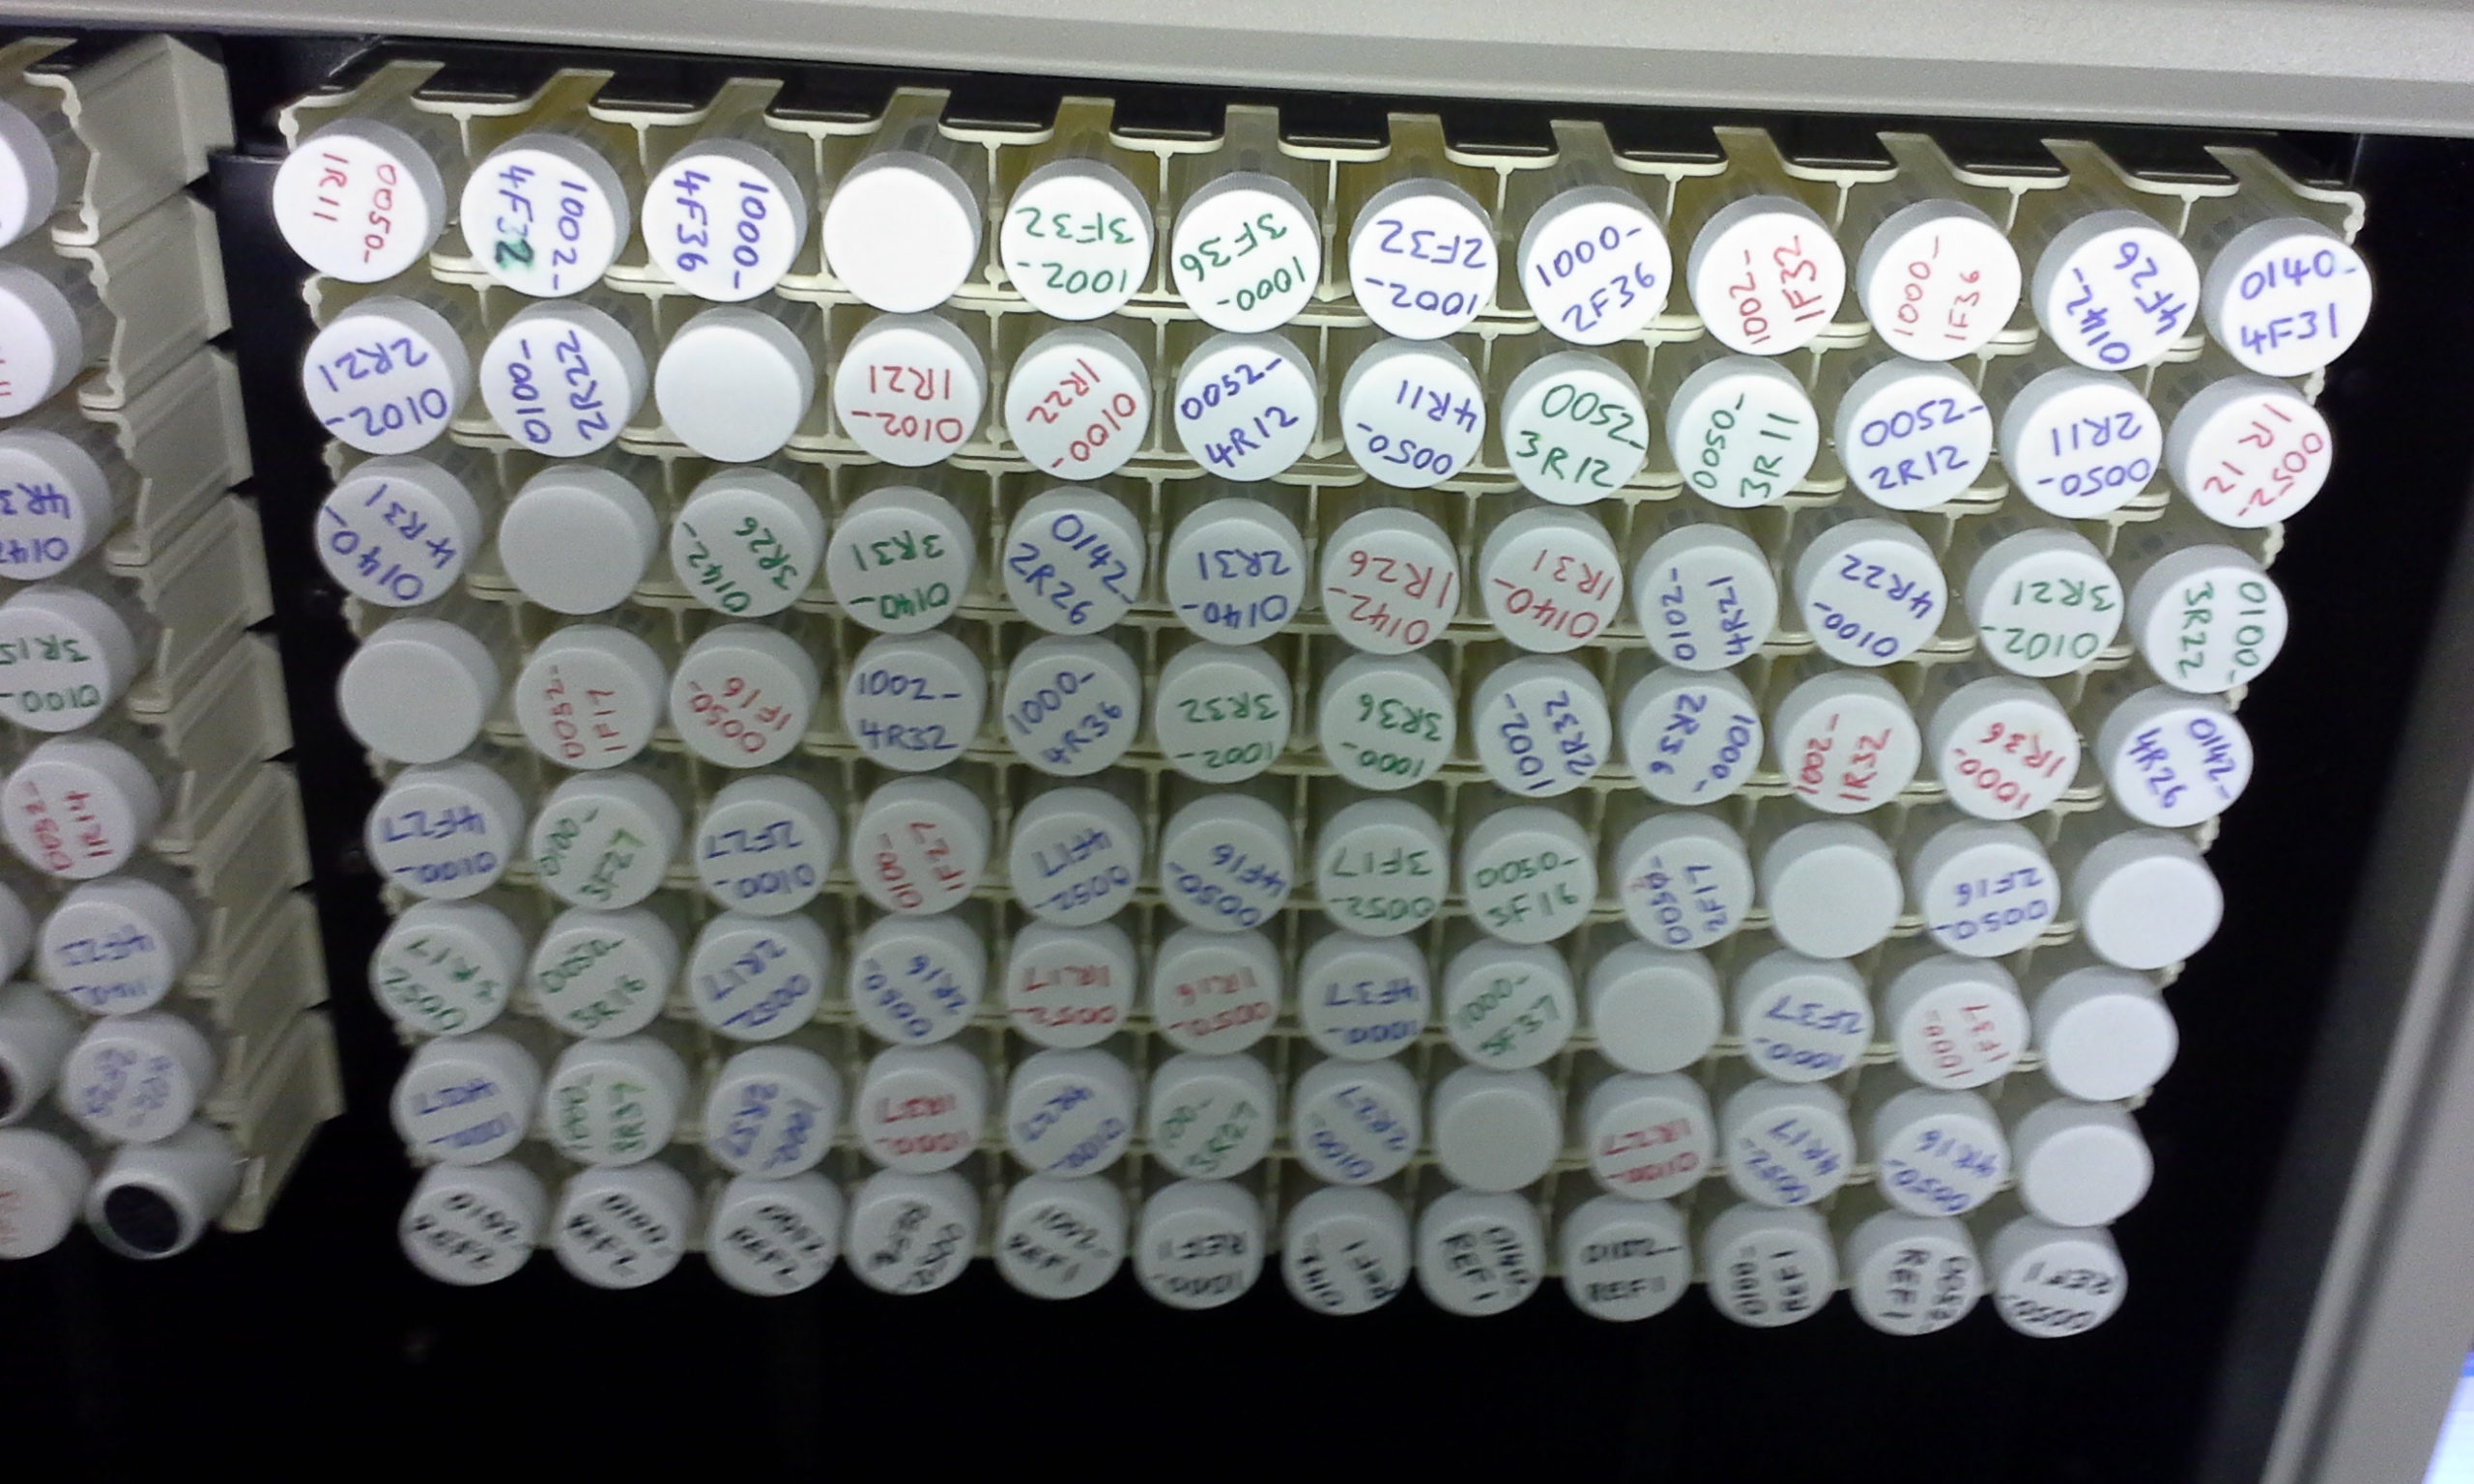 0050-
REF1
0052-
REF1
0100-
REF1
0102-
REF1
0140-
REF1
0142-
REF1
1000-
REF1
1002-
REF1
0050-
REF2
0052-
REF2
0100-
REF2
0102-
REF2
0050-
4R16
0052-
4R17
0100-
1R27
0100-
2R27
3R27
0100-
4R27
1000-
1R37
1000-
2R37
1000-
3R37
1000-
4R37
1000-
1F37
1000-
2F37
1000-
3F37
1000-
4F37
0050-
1R16
0052-
1R17
0050-
2R16
0052-
2R17
0050-
3R16
0052
R17
0050-
2F16
2F17
0050-
3F16
0052-
3F17
0050-
4F16
0052-
4F17
0100-
1F27
0100-
2F27
0100-
3F27
0100-
4F27
0142-
4R26
1000-
1R36
1002-
1R32
1000-
2R36
1002-
2R32
1000-
3R36
1002-
3R32
1000-
4R36
1002-
4R32
0050-
1F16
0052-
1F17
0100-
3R22
0102-
3R21
0100-
4R22
0102-
4R21
0140-
1R31
0142-
1R26
0140-
2R31
0142-
2R26
0140-
3R31
0142-
3R26
0140-
4R31
0052-
1R12
0050-
2R11
0052-
2R12
0050-
3R11
0052-
3R12
0050-
4R11
0052-
4R12
0100-
1R22
0102-
1R21
0100-
2R22
0102-
2R21
0140-
4F31
0142-
4F26
1000-
1F36
1002-
1F32
1000-
2F36
1002-
2F32
1000-
3F36
1002-
3F32
1000-
4F36
1002-
4F32
0050-
1R11
1R14
0100-
3R15